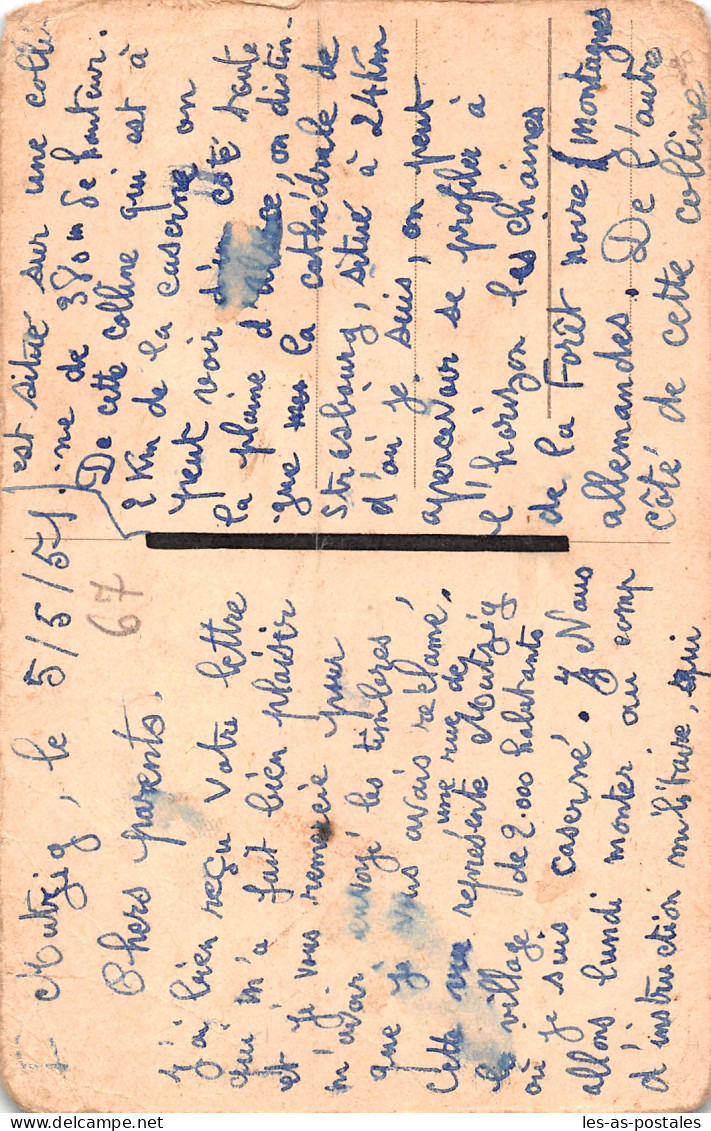 Mutzig, le 5/5/51
67
Chers parents.
J'ai bien reçu votre lettre
qui m'a fait bien plaisir
et je vous remercie pour
m'avoir envoyé les timbres
que je vous avais réclamé.
Cette vue représente une rue de Mutzig
le village de 2.000 habitants
où je suis caserné. Nous
allons lundi monter au comp
d'instruction militaire, qui
est situé sur une colli
ne de 380m de hauteur.
De cette colline qui est à
2 Km de la caserne on
peut voir d'un côté toute
la plaine d'alsace, on distin-
gue la cathédrale de
Strasbourg, situé à 24Km
d'où je suis, on peut
apercevoir se profiler à
l'horizon les chaines
de la Forêt noire (montagnes
allemandes. De l'autre
côté de cette colline
les-as-postales